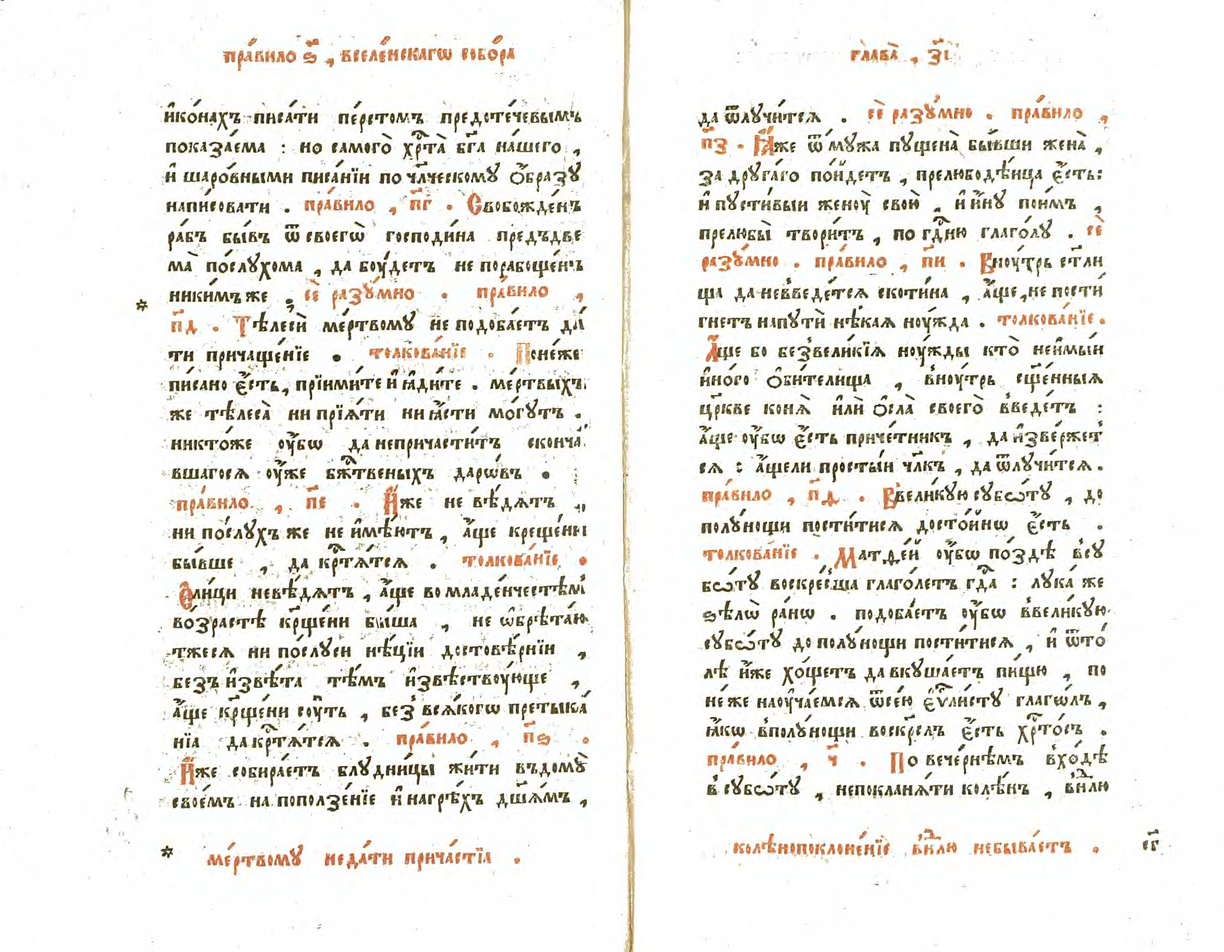 пра́вило ѕ҃ , вселе́нскагѡ собо́ра
и҆ко́нахъ писа́ти пе́рстомъ предоте́чевымъ
показа́ема : но самого̀ хрⷭ҇та̀ бг҃а на́шего ,
и҆ шаро́вными писа́нїи по чл҃ческому ѻ҆́бразꙋ
написовати . пра́вило , пг҃ . Свобожде́нъ
ра́бъ бы́въ ѿ своегѡ̀ господи́на предъдве
ма̀ по́слꙋхома , да боу́детъ не порабоще́нъ
никимъже . сѐ разꙋ́мно . пра́вило ,
пд҃ . Тѣ́лесѝ ме́ртвомꙋ не подоба́етъ да́
ти причаще́нїе . толкова́нїе . Поне́же
пи́сано є҆́сть, прїими́те и҆ ꙗ҆ди́те . ме́ртвыхъ
же тѣлеса̀ ни прїѧ́ти ни ꙗ҆́сти мо́гꙋтъ .
никто́же оу҆́бѡ да непричасти́тъ сконча́
вшагосѧ оу҆́же бж҇твеныхъ даро́въ .
пра́вило , пе҃ . И҆́же не вѣ́дѧтъ ,
ни по́слꙋхъ же не и҆мѣ́ютъ , а҆́ще креще́ни
бы́вше , да крⷭ҇тѧ́тсѧ . толкова́нїе .
Ѻ҆ли́цы невѣ́дѧтъ , а҆́ще во младе́нчестѣмъ
во́зрастѣ крщ҃ени бы́ша , не ѡ҆брѣта́ю
тжесѧ ни по́слꙋси нѣ́цїи достовѣ́рнїи ,
безъ и҆звѣ́та тѣ́мъ и҆звѣствоу́юще ,
а҆́ще крщ҃ени соу́ть , без̾ всѧ́когѡ претыка́
нїѧ да крⷭ҇тѧ́тсѧ . пра́вило , пѕ҃ .
И҆́же собира́етъ блꙋдни́цы жи́ти въ домꙋ̀
свое́мъ на поползе́нїе и҆ на грѣ́хъ дш҃а́мъ ,
* ме́ртвомꙋ неда́ти прича́стїѧ .
глава̀ , з҃і
да ѿлꙋчи́тсѧ . сѐ разꙋ́мно . пра́вило ,
пз҃ . Ꙗ҆́же ѿ мꙋ́жа пꙋщена̀ бы́вши жена̀ ,
за дрꙋга́го по́йдетъ , прелюбодѣ́ица є҆́сть:
и҆ пꙋсти́выи женоу̀ свою̀ , и҆ и҆́нꙋ пои́мъ ,
прелюбы̀ твори́тъ , по гдⷭ҇ню глаго́лꙋ . сѐ
разꙋ́мно . пра́вило , пи҃ . Вноу́трь ст҃ли
ща да невведе́тсѧ скоти́на , а҆́ще, не пости́
гнетъ напꙋтѝ нѣ́каѧ ноу́жда . толкова́нїе .
А҆́ще бо без̾ вели́кїѧ ноу́жды кто̀ неи́мыи
и҆но́го ѻ҆би́телища , вноу́трь сщ҃е́нныѧ
цр҃кве конѧ̀ и҆лѝ ѻ҆сла̀ своего̀ введе́тъ :
а҆́ще оу҆́бѡ є҆́сть приче́тникъ , да и҆зве́ржет
сѧ : а҆́щели просты́и чл҃къ , да ѿлꙋчи́тсѧ .
пра́вило , пѳ҃ . Ввели́кꙋю сꙋбѡ́тꙋ , до
полꙋ́нощи пости́тисѧ досто́йнѡ є҆́сть .
толкова́нїе . Матѳе́й оу҆́бѡ по́здѣ всꙋ
бѡ́тꙋ воскре́сша глаго́летъ гдⷭ҇а : лꙋка́ же
ѕѣлѡ̀ ра́нѡ . подоба́етъ оу҆́бѡ ввели́кꙋю
сꙋбѡ́тꙋ до полꙋ́нощи пости́тисѧ , и҆ ѿто́
лѣ и҆́же хо́щетъ да вкꙋша́етъ пи́щю , по
не́же наоуча́емсѧ ѿсею̀ є҆ѵⷢ҇ли́стꙋ глаго́лъ ,
ꙗ҆́кѡ вполꙋ́нощи воскре́слъ є҆́сть хрⷭ҇то́съ .
пра́вило , ч҃ . По вече́рнѣмъ вхо́дѣ
в сꙋбѡ́тꙋ , непоклана́ти колѣ́нъ , внⷣлю
колѣнопоклоне́нїе внⷣлю небыва́етъ . св҃